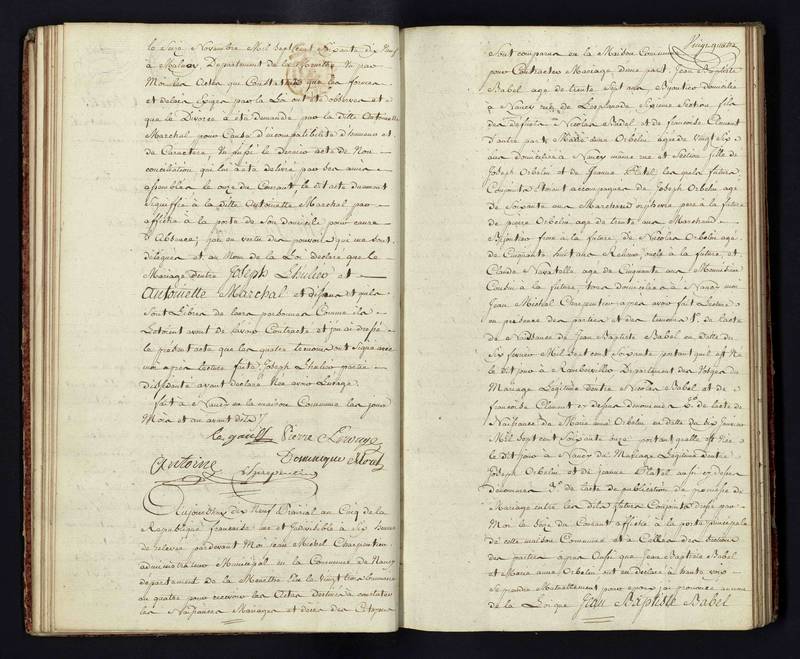 le Seize Novembre Mil Sept cent Soixante dix Neuf
à Département de la Meurthe Vu par
Moi les Actes qui Constatent que les formes
et délais Exigés par la Loi ont été observés et
que le Divorce a été demandé par la ditte Antoinette
Marchal pour Cause d'incompatibilité d'humeur et
de Caractère, Vu aussi le dernier acte de Non
conciliation qui lui a été délivré par ses amis
assemblés le onze du Courant, le dit acte dument
Signiffié à la ditte Antoinette Marchal par
affiche à la porte de Son domicile pour cause
d'Absence; j'ai en vertu des pouvoirs qui me sont
délégués et au Nom de la Loi déclaré que le
Mariage d'entre Joseph Lhulier et
Antoinette Marchal est dissous et qu'ils
Sont Libres de leurs personnes Comme ils
L'etoient avant de l'avoir Contracté et j'en ai dressé
le présent acte que les quatre témoins ont Signé avec
moi apres lecture faite, Joseph Lhulier partie
Divorçante ayant déclaré Nen avoir L'usage.
fait à Nancy en la maison Commune les jour
Mois et an avant dits
Pierre
Dominique
Antoine
Charpentier
Aujourdhui dix Neuf Prairial an Cinq de la
République française une et Indivisible à Six heures
de relevée pardevant Moi Jean Michel Charpentier
administrateur Municipal de la Commune de Nancy
département de la Meurthe Elu le vingt trois brumaire
an quatre pour recevoir les Actes Destinés à constater
les Naissances Mariages et décès des Citoyens
Vingt quatre
Sont comparus en la Maison Commune
pour Contracter Mariage d'une part Jean Baptiste
Babel agé de trente Sept ans Bijoutier domicilié
à Nancy rue de L'esplanade Sixieme Section fils
des defunts Nicolas Babel et de françoise Clement
D'autre part Marie anne Orbelin agée de vingt six
ans domiciliée à Nancy meme rue et Section fille de
Joseph Orbelin et de Jeanne Platel les quels futurs
Conjoints Etaient accompagnés de Joseph Orbelin agé
de Soixante ans Marchand orphevre pere à la future
de pierre Orbelin agé de trente ans Marchand
Bijoutier frere à la future, de Nicolas Orbelin agé
de Cinquante huit ans Relieur, oncle à la future, et
Claude agé de Cinquante ans Menuisier
Cousin à la future tous domiciliés à Nancy moi
Jean Michel Charpentier apres avoir fait Lecture
en presence des parties et des temoins 1°. de l'acte
de Naissance de Jean Baptiste Babel en datte du
Six fevrier Mil Sept cent Soixante portant qu'il est Né
le dit jour à Rambervillers Departement des Vosges du
Mariage Legitime d'entre Nicolas Babel et de
françoise Clement cy dessus dénommés 2°. de l'acte de
Naissance de Marie anne Orbelin en datte du dix Janvier
Mil Sept cent Soixante onze portant qu'elle est Née
le dit jour à Nancy du Mariage Legitime d'entre
Joseph Orbelin et de jeanne Platel aussi cy dessus
dénommés 3°. de l'acte de publication de promesse de
Mariage entre les dits futurs Conjoints dressé par
Moi le du Courant affiché à la porte principale
de cette maison Commune et à Celles des Sections
des parties apres Aussi que Jean Baptiste Babel
et Marie anne Orbelin ont eu déclaré à haute voix
Se prendre Mutuellement pour epoux j'ai prononcé au nom
de la Loi que Jean Baptiste Babel